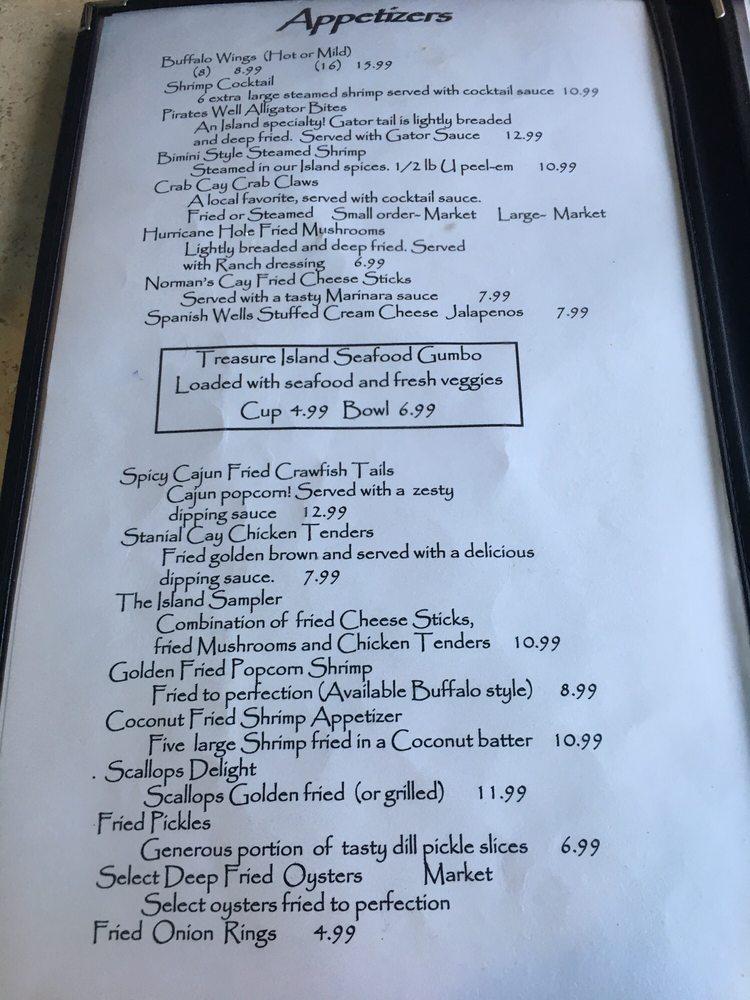 Appetizers
Buffalo Wings (Hot or Mild)
(8) 8.99 (16) 15.99
Shrimp Cocktail
6 extra large steamed shrimp served with cocktail sauce 10.99
Pirates Well Alligator Bites
An Island specialty! Gator tail is lightly breaded
and deep fried. Served with Gator Sauce 12.99
Bimini Style Steamed Shrimp
Steamed in our Island spices. 1/2 lb U peel-em 10.99
Crab Cay Crab Claws
A local favorite, served with cocktail sauce.
Fried or Steamed Small order- Market Large- Market
Hurricane Hole Fried Mushrooms
Lightly breaded and deep fried. Served
with Ranch dressing 6.99
Norman's Cay Fried Cheese Sticks
Served with a tasty Marinara sauce 7.99
Spanish Wells Stuffed Cream Cheese Jalapenos 7.99
Treasure Island Seafood Gumbo
Loaded with seafood and fresh veggies
Cup 4.99 Bowl 6.99
Spicy Cajun Fried Crawfish Tails
Cajun popcorn! Served with a zesty
dipping sauce 12.99
Stanial Cay Chicken Tenders
Fried golden brown and served with a delicious
dipping sauce. 7.99
The Island Sampler
Combination of fried Cheese Sticks,
fried Mushrooms and Chicken Tenders 10.99
Golden Fried Popcorn Shrimp
Fried to perfection (Available Buffalo style) 8.99
Coconut Fried Shrimp Appetizer
Five large Shrimp fried in a Coconut batter 10.99
. Scallops Delight
Scallops Golden fried (or grilled) 11.99
Fried Pickles
Generous portion of tasty dill pickle slices 6.99
Select Deep Fried Oysters Market
Select oysters fried to perfection
Fried Onion Rings 4.99